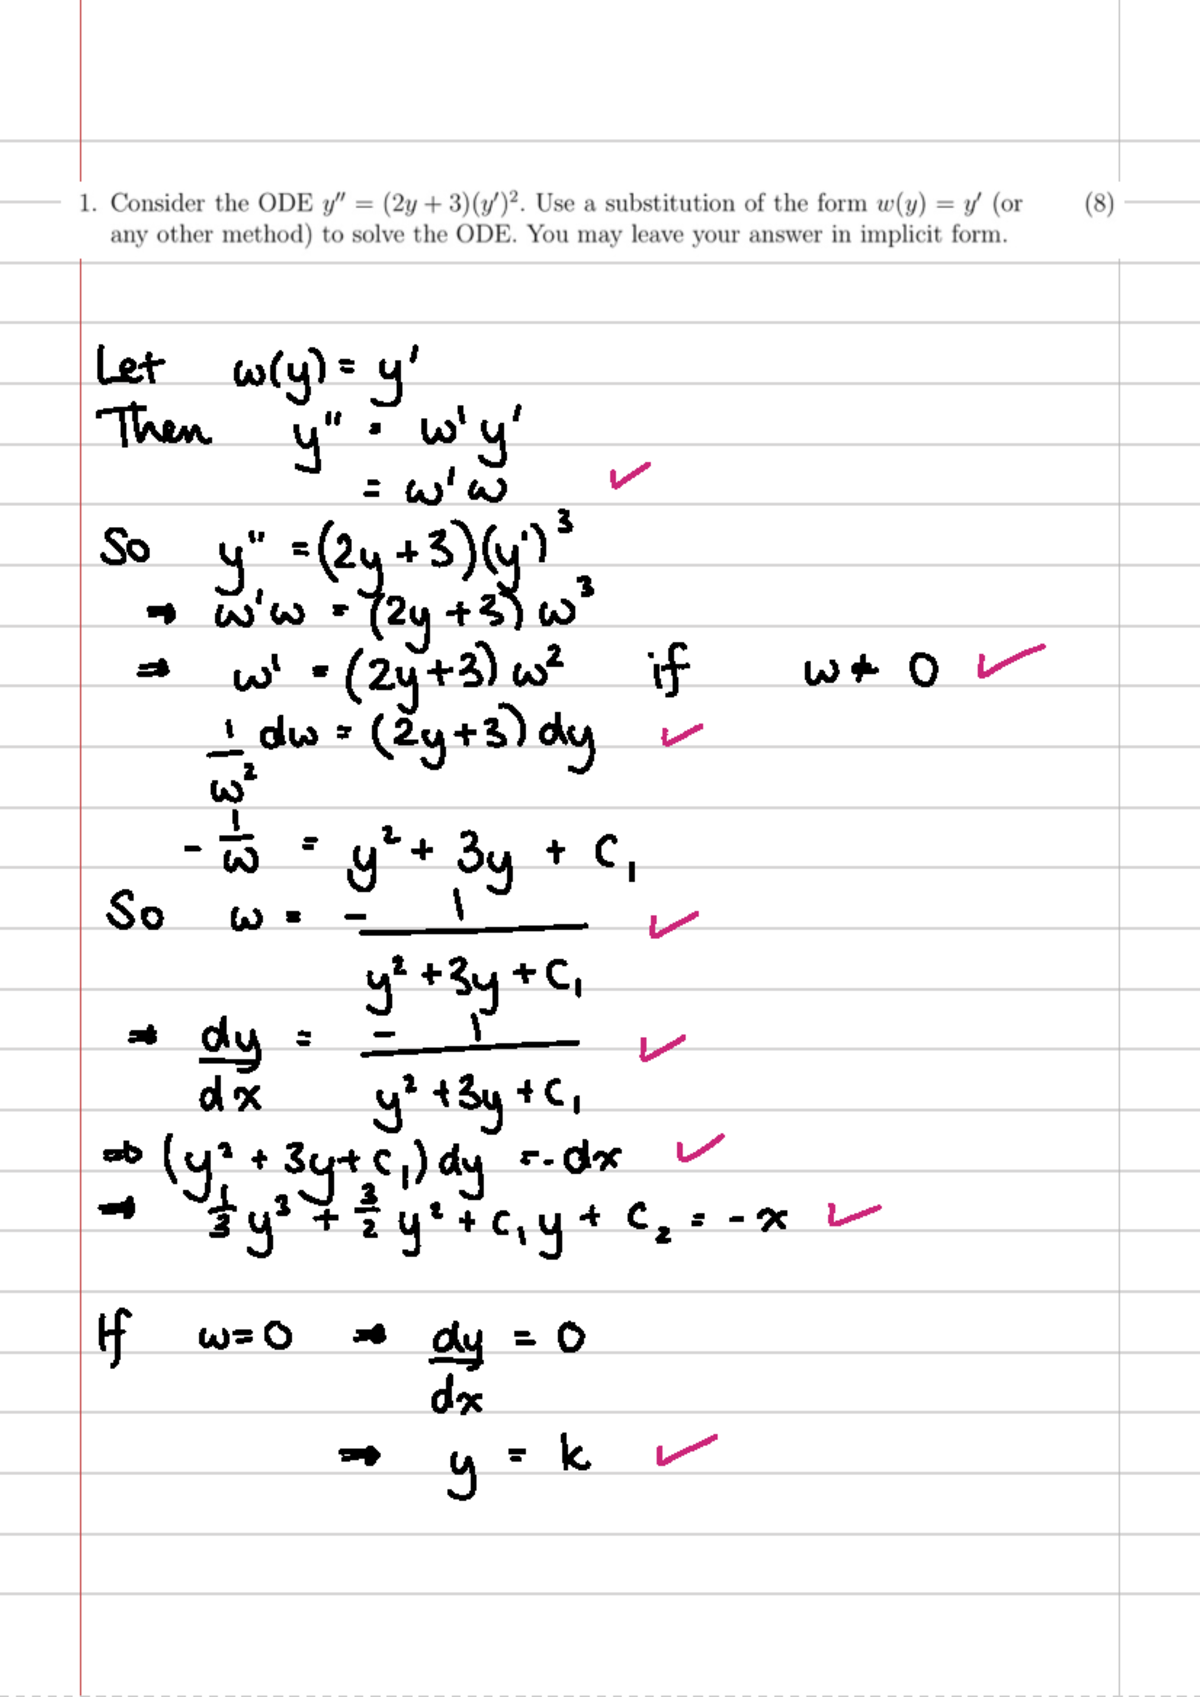 1. Consider the ODE y″ = (2y + 3)(y′)². Use a substitution of the form w(y) = y′ (or (8)
any other method) to solve the ODE. You may leave your answer in implicit form.
Let w(y) = y′
Then y″ = w′y′
= w′w ✓
So y″ = (2y+3)(y′)³
⇒ w′w = (2y+3)w³
⇒ w′ = (2y+3)w² if w ≠ 0 ✓
1/w² dw = (2y+3)dy ✓
- 1/w = y² + 3y + C₁
So w = - 1/(y² + 3y + C₁) ✓
⇒ dy/dx = - 1/(y² + 3y + C₁) ✓
⇒ (y² + 3y + C₁)dy = -dx ✓
⇒ 1/3 y³ + 3/2 y² + C₁y + C₂ = -x ✓
If w=0 ⇒ dy/dx = 0
⇒ y = k ✓